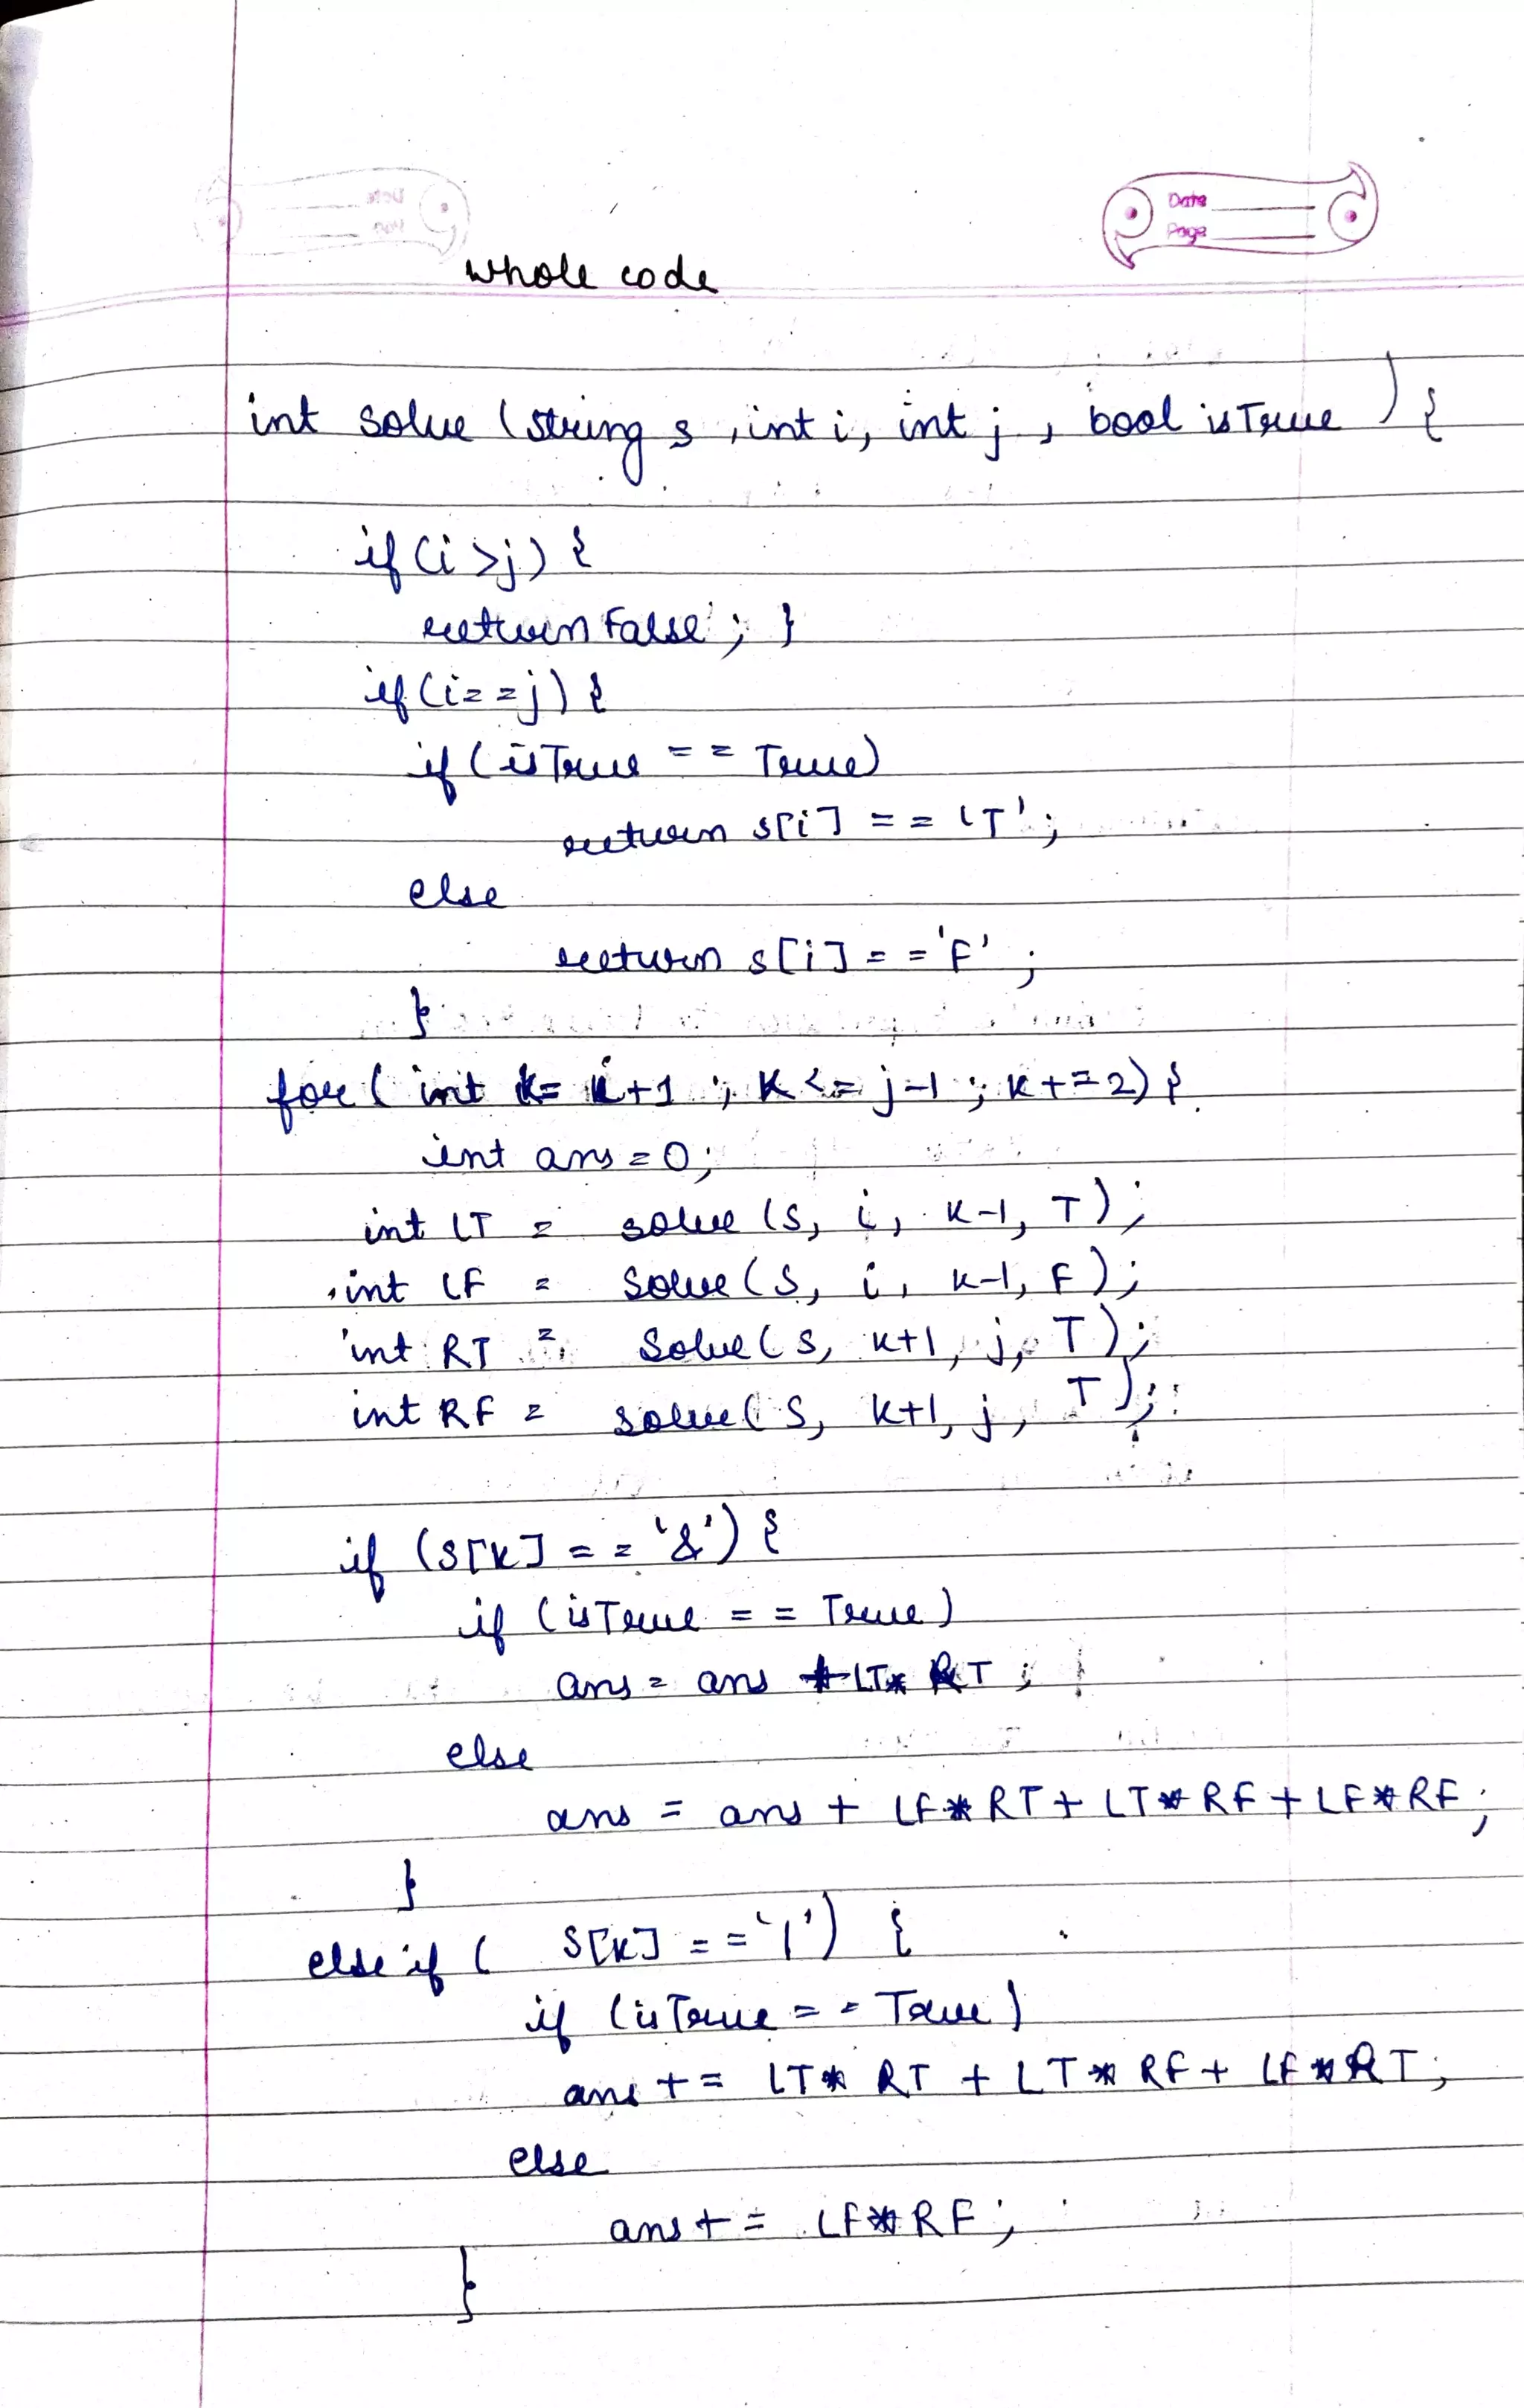 Date
Page
whole code
int solve (string s, int i, int j, bool isTrue) {
if (i >j) {
return False ; }
if (i==j) {
if (isTrue == True)
return s[i] == 'T';
else
return s[i] == 'F' ;
}
for ( int k= i+1 ; k <= j-1 ; k+=2) {
int ans=0;
int LT = solve (s, i, k-1, T);
int LF = solve (s, i, k-1, F);
int RT = solve (s, k+1, j, T);
int RF = solve( s, k+1, j, T);
if (s[k] == '&') {
if (isTrue == True)
ans = ans + LT* RT ;
else
ans = ans + LF*RT + LT*RF + LF*RF ;
}
else if ( s[k] == '|') {
if (isTrue == True)
ans += LT* RT + LT * RF + LF*RT;
else
ans += LF*RF ;
}